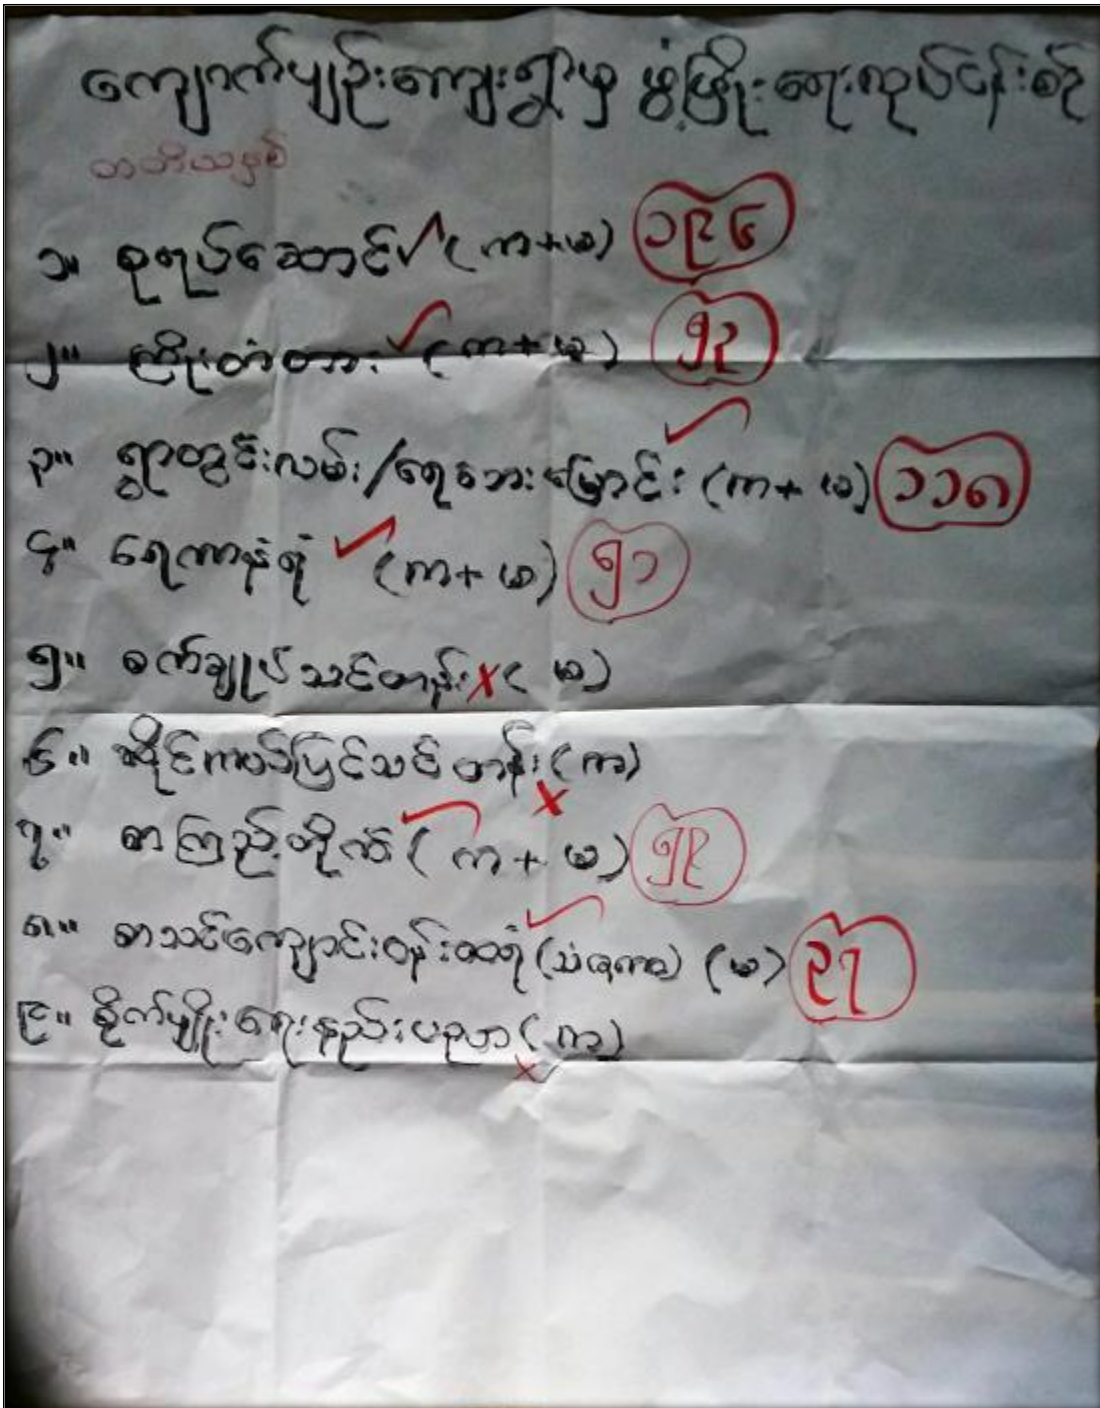 ကျောက်ပျဉ်းကျေးရွာမှ ဖွံ့ဖြိုးရေးလုပ်ငန်းစဉ်
တတိယနှစ်
၁။ စုရပ်ဆောင် ✓ (ကာ+မ) ၁၉၆
၂။ ကြိုးတံတား ✓ (ကာ+မ) ၅၃
၃။ ရွာတွင်းလမ်း/ရေဘေးမြောင်း ✓ (ကာ+မ) ၁၁၈
၄။ ရေကာနံရံ ✓ (ကာ+မ) ၅၁
၅။ စက်ချုပ်သင်တန်း X (မ)
၆။ ဆိုင်ကယ်ပြင်သင်တန်း (ကာ) X
၇။ စာကြည့်တိုက် ✓ (ကာ + မ) ၅၉
၈။ စာသင်ကျောင်းဝန်းထရံ ✓ (သံဇကာ) (မ) ၃၇
၉။ စိုက်ပျိုးရေးနည်းပညာ (ကာ) X